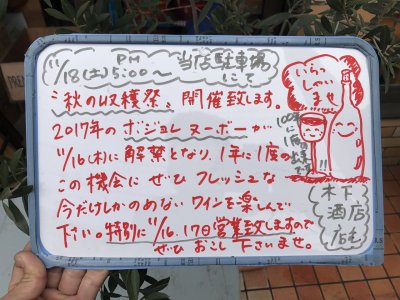 11/18(土) PM 5:00〜 当店駐車場にて
"秋の収穫祭" 開催致します。
2017年の ボジョレ ヌーボーが
11/16(木)に 解禁となり、1年に1度の
この機会に ぜひ フレッシュな
今だけしかのめない ワインを楽しんで
下さい。特別に 11/16.17日営業致しますので
ぜひ おこし 下さいませ。
いらっしゃいませ
!!
木下酒店
店主